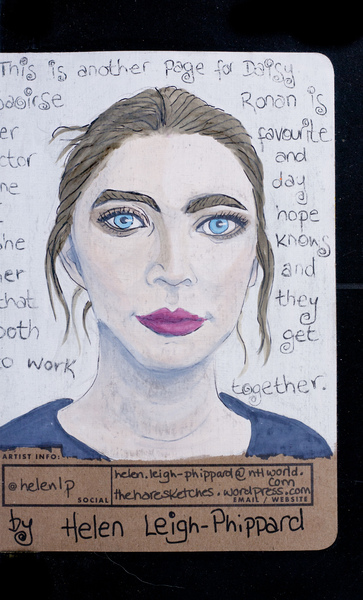 This is another page for Daisy
aoirse Ronan is
er favourite
ctor and
ne day
hope
she knows
her and
that they
both get
to work
together.
ARTIST INFO:
@helenlp
SOCIAL
helen.leigh-phippard@ntlworld.
com
theharesketches.wordpress.com
EMAIL / WEBSITE
by Helen Leigh-Phippard